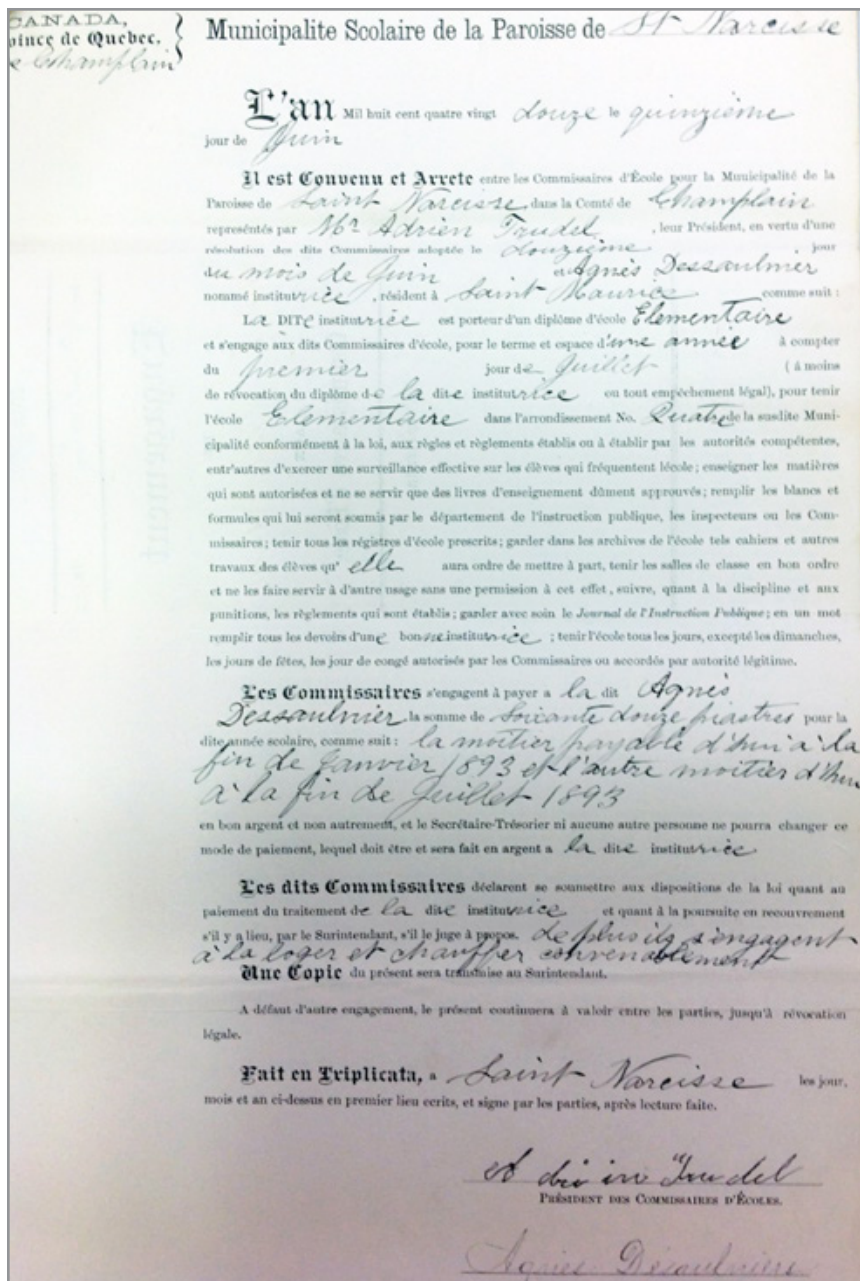 CANADA,
Province de Quebec.
de Champlain
Municipalite Scolaire de la Paroisse de St Narcisse
L'an Mil huit cent quatre vingt douze le quinzième
jour de Juin
Il est Convenu et Arrete entre les Commissaires d'École pour la Municipalité de la
Paroisse de Saint Narcisse dans la Comté de Champlain
représentés par Mr Adrien Trudel, leur Président, en vertu d'une
résolution des dits Commissaires adoptée le douzième jour
du mois de Juin et Agnès Dessaulnier
nommé institutrice, résident à Saint Maurice comme suit :
La DITe institutrice est porteur d'un diplôme d'école Elementaire
et s'engage aux dits Commissaires d'école, pour le terme et espace d'une année à compter
du premier jour de Juillet (à moins
de révocation du diplôme de la dite institutrice ou tout empêchement légal), pour tenir
l'école Elementaire dans l'arrondissement No. Quatre de la susdite Muni-
cipalité conformément à la loi, aux règles et règlements établis ou à établir par les autorités compétentes,
entr'autres d'exercer une surveillance effective sur les élèves qui fréquentent lécole ; enseigner les matières
qui sont autorisées et ne se servir que des livres d'enseignement dûment approuvés ; remplir les blancs et
formules qui lui seront soumis par le département de l'instruction publique, les inspecteurs ou les Com-
missaires ; tenir tous les régistres d'école prescrits ; garder dans les archives de l'école tels cahiers et autres
travaux des élèves qu'elle aura ordre de mettre à part, tenir les salles de classe en bon ordre
et ne les faire servir à d'autre usage sans une permission à cet effet, suivre, quant à la discipline et aux
punitions, les règlements qui sont établis ; garder avec soin le Journal de l'Instruction Publique ; en un mot
remplir tous les devoirs d'une bonne institutrice ; tenir l'école tous les jours, excepté les dimanches,
les jours de fêtes, les jour de congé autorisés par les Commissaires ou accordés par autorité légitime.
Les Commissaires s'engagent à payer a la dit Agnès
Dessaulnier la somme de Soixante douze piastres pour la
dite année scolaire, comme suit : la moitier payable d'hui à la
fin de Janvier 1893 et l'autre moitier d'hui
à la fin de Juillet 1893
en bon argent et non autrement, et le Secrétaire-Trésorier ni aucune autre personne ne pourra changer ce
mode de paiement, lequel doit être et sera fait en argent a la dite institutrice
Les dits Commissaires déclarent se soumettre aux dispositions de la loi quant au
paiement du traitement de la dite institutrice et quant à la poursuite en recouvrement
s'il y a lieu, par le Surintendant, s'il le juge à propos. de plus ils s'engagent
à la loger et chauffer convenablement
Une Copie du présent sera transmise au Surintendant.
A défaut d'autre engagement, le présent continuera à valoir entre les parties, jusqu'à révocation
légale.
Fait en Triplicata, a Saint Narcisse les jour,
mois et an ci-dessus en premier lieu ecrits, et signe par les parties, après lecture faite.
Adrien Trudel
PRÉSIDENT DES COMMISSAIRES D'ÉCOLES.
Agnès Désaulniers